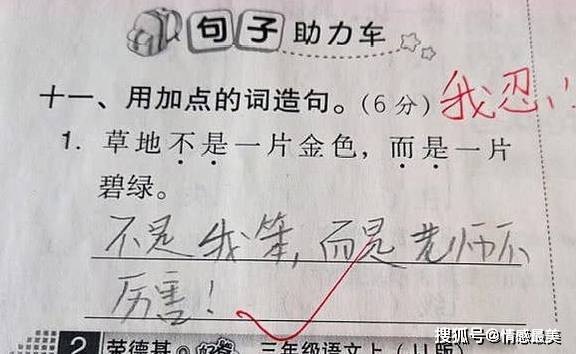 句子助力车
十一、用加点的词造句。(6分) 我忍！
1. 草地不是一片金色，而是一片
碧绿。
不是我笨，而是老师不
厉害！
2 荣德基 三年级语文上(JJ版)
搜狐号@情感最美